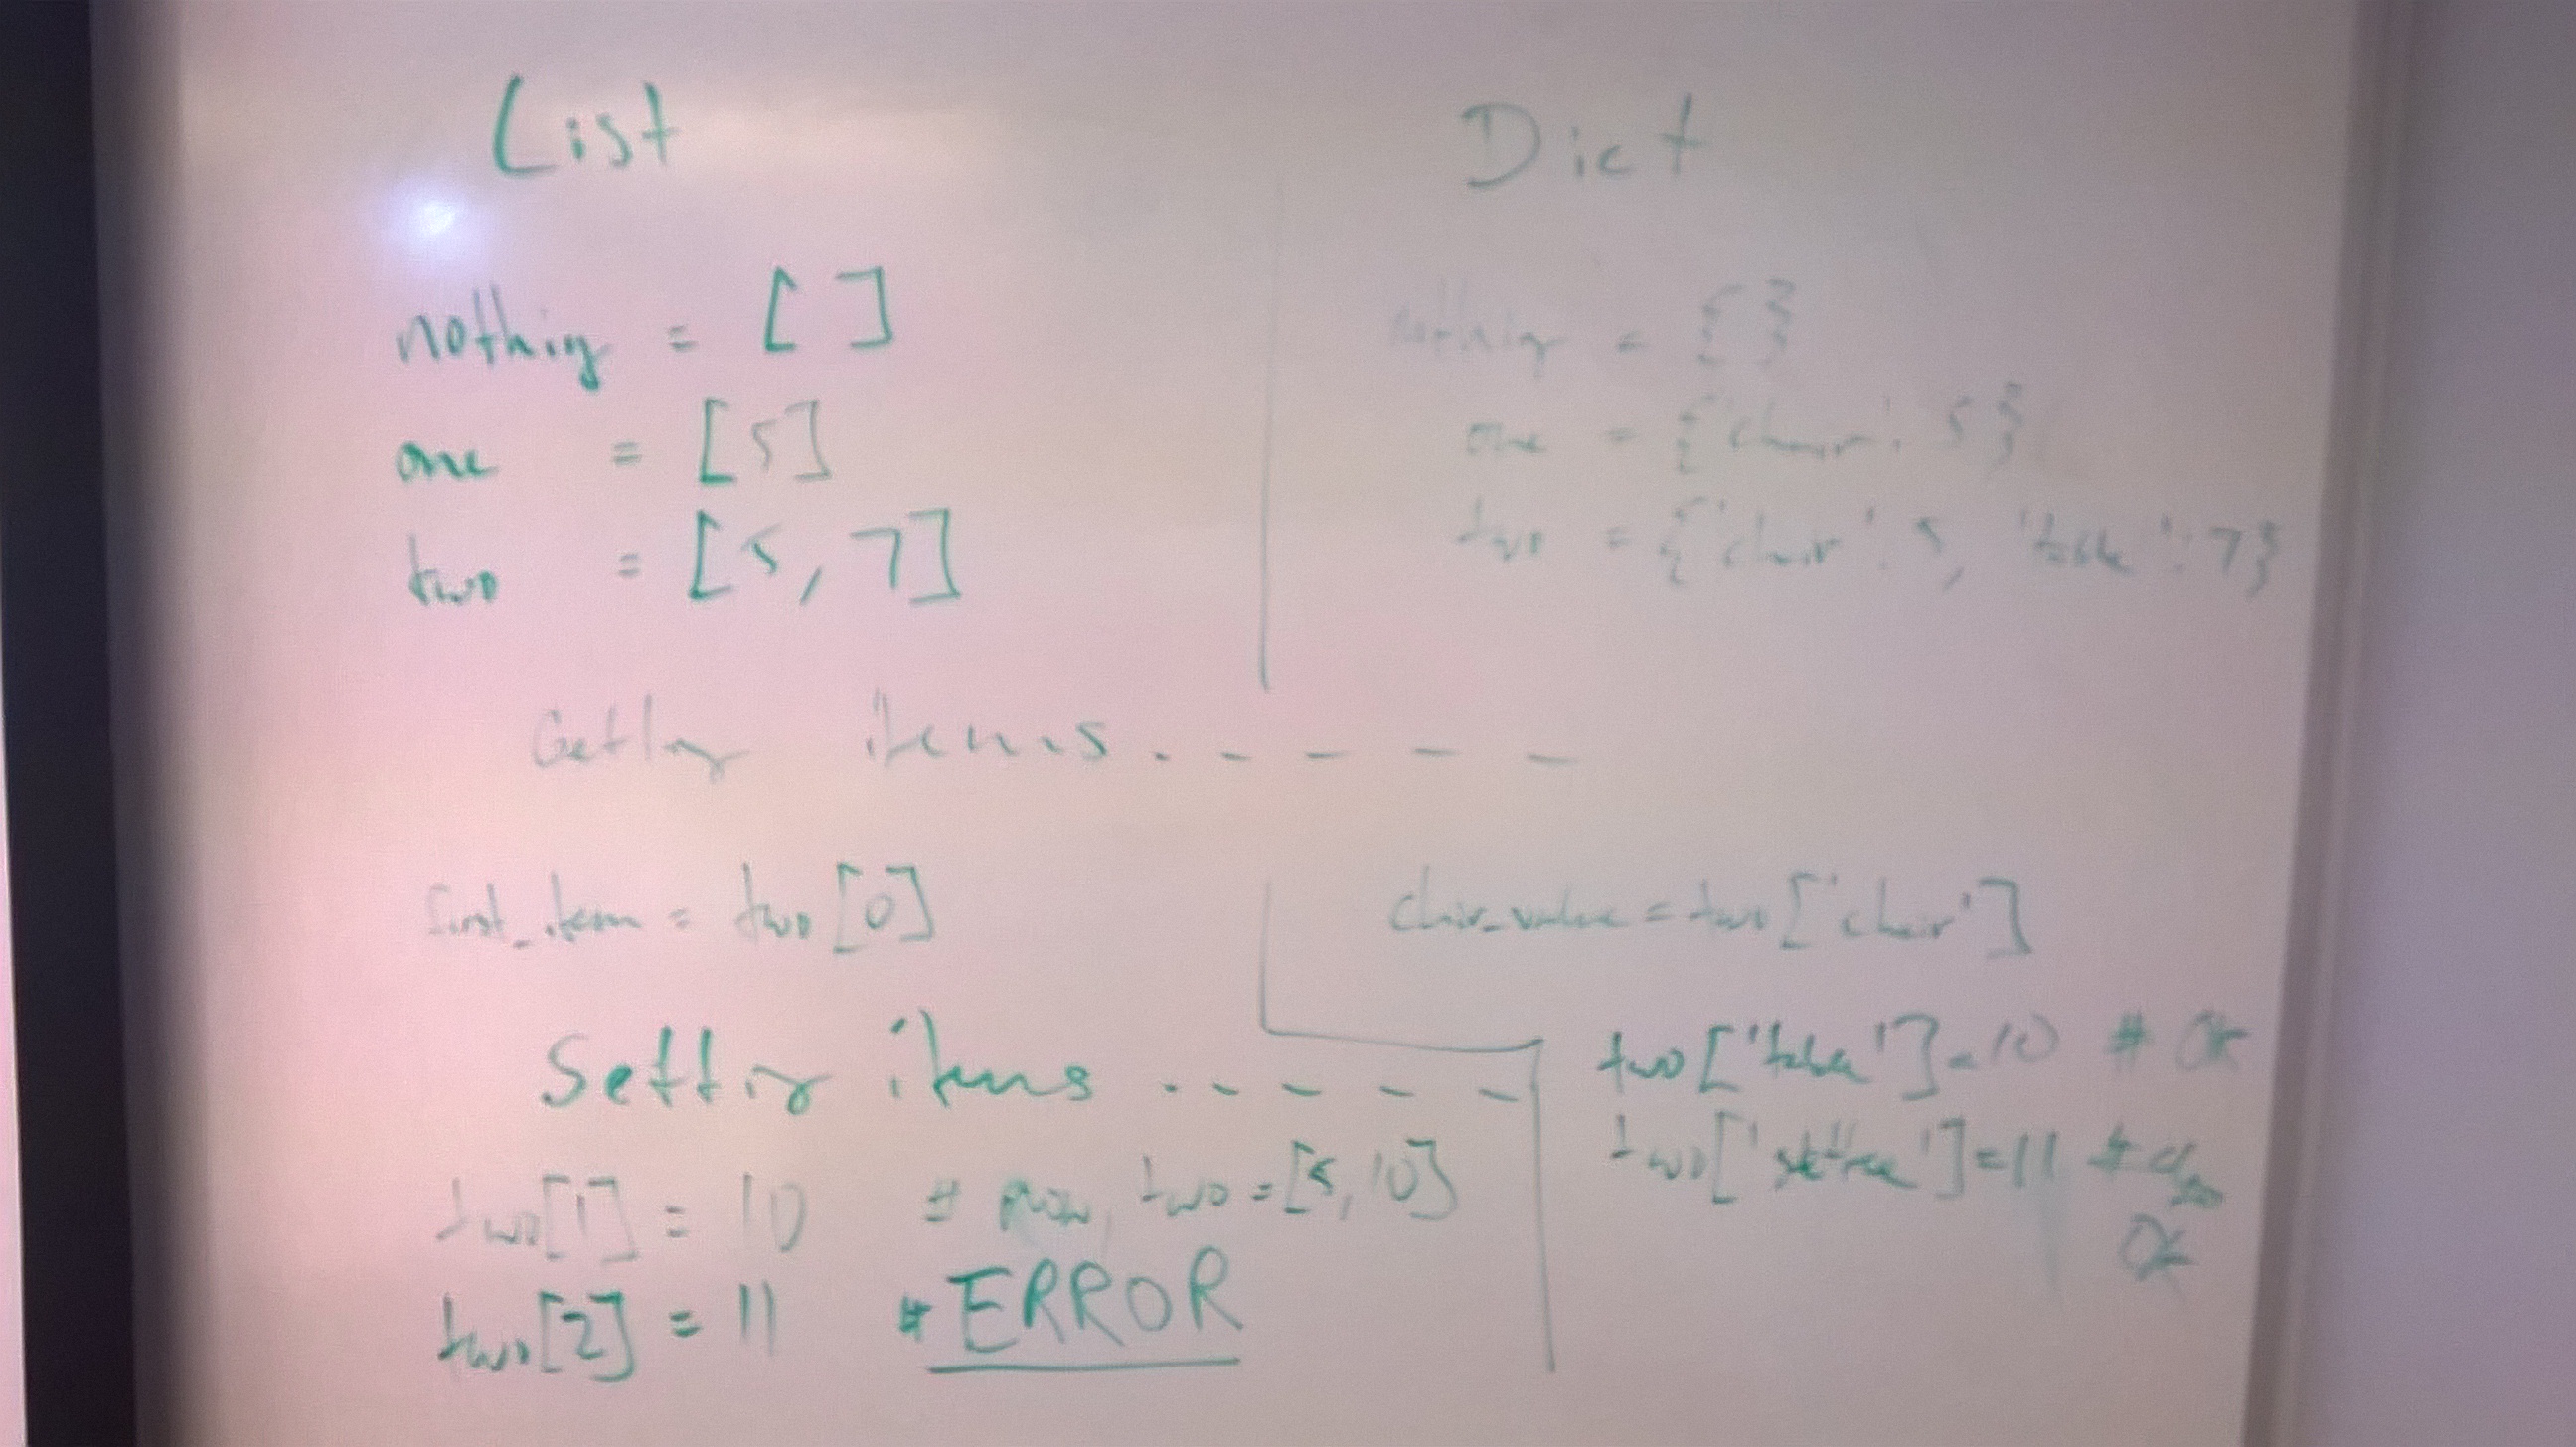 List
nothing = [ ]
one = [5]
two = [5, 7]
Dict
nothing = { }
one = {'chair': 5}
two = {'chair': 5, 'table': 7}
Getting items . - - - -
first_item = two[0]
chair_value = two['chair']
Setting items . . - - - -
two[1] = 10 # now, two = [5, 10]
two[2] = 11 # ERROR
two['table'] = 10 # OK
two['settee'] = 11 # also
OK